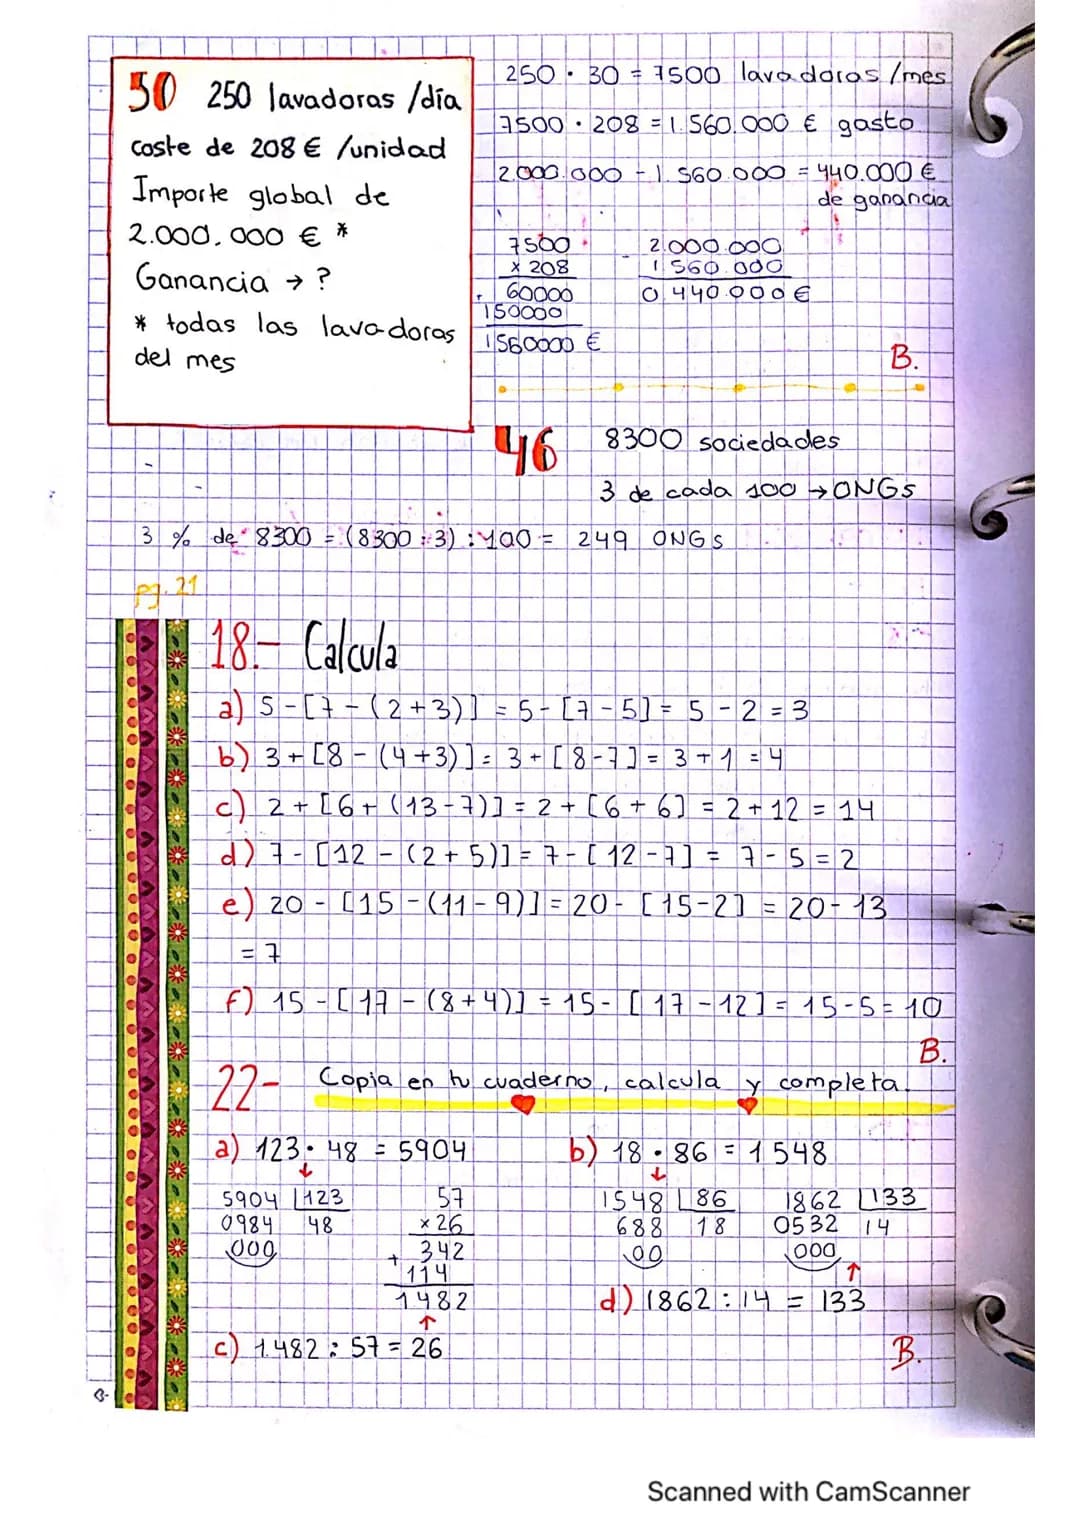 50 250 lavadoras /día
coste de 208 € /unidad
Importe global de
2.000.000 € *
Ganancia → ?
* todas las lavadoras
del mes
250 · 30 = 7500 lavadoras /mes
7500 · 208 = 1.560.000 € gasto
2.000.000 - 1.560.000 = 440.000 €
de ganancia
7500
x 208
60000
150000
1560000 €
2.000.000
1 560.000
0 440.000 €
B.
46 8300 sociedades
3 de cada 100 → ONGs
3 % de 8300 = (8300 · 3) : 100 = 249 ONGs
pg. 21
18.- Calcula
a) 5 - [7 - (2+3)] = 5 - [7 - 5] = 5 - 2 = 3
b) 3 + [8 - (4+3)] = 3 + [8-7] = 3 + 1 = 4
c) 2 + [6 + (13-7)] = 2 + [6 + 6] = 2 + 12 = 14
d) 7 - [12 - (2+5)] = 7 - [12-7] = 7 - 5 = 2
e) 20 - [15 - (11-9)] = 20 - [15-2] = 20 - 13
= 7
f) 15 - [17 - (8+4)] = 15 - [17 - 12] = 15 - 5 = 10
B.
22- Copia en tu cuaderno, calcula y completa.
a) 123 · 48 = 5904
5904 123
0984 48
000
57
x 26
342
+ 114
1482
c) 1.482 : 57 = 26
b) 18 · 86 = 1548
1548 86
688 18
00
1862 133
0532 14
000
d) 1862 : 14 = 133
B.
Scanned with CamScanner